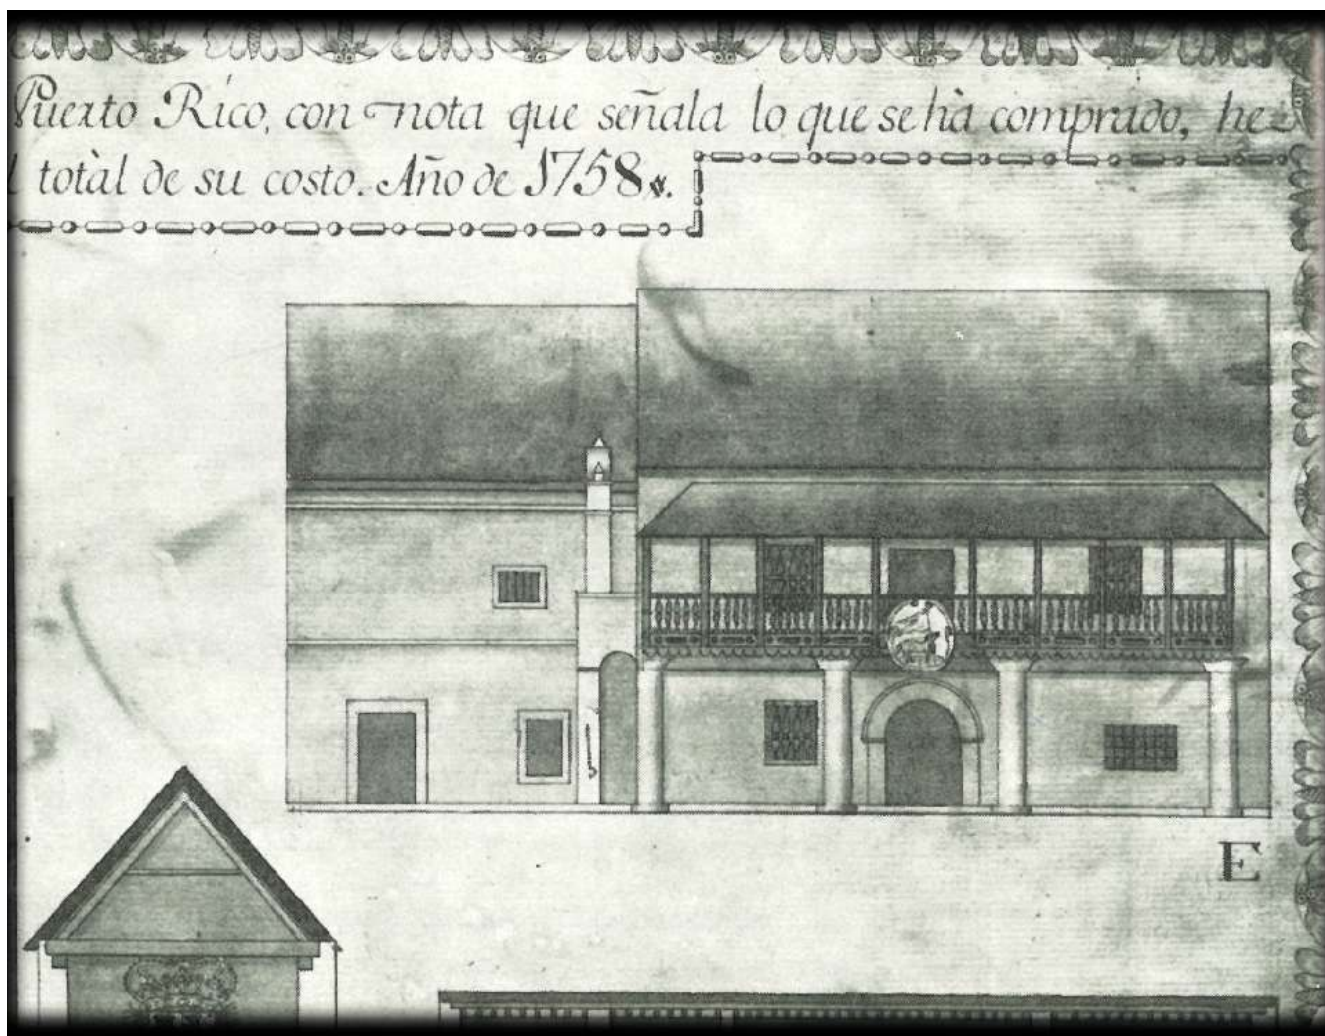 Puerto Rico, con nota que señala lo que se hà comprado, he
l totàl de su costo. Año de 1758.
E